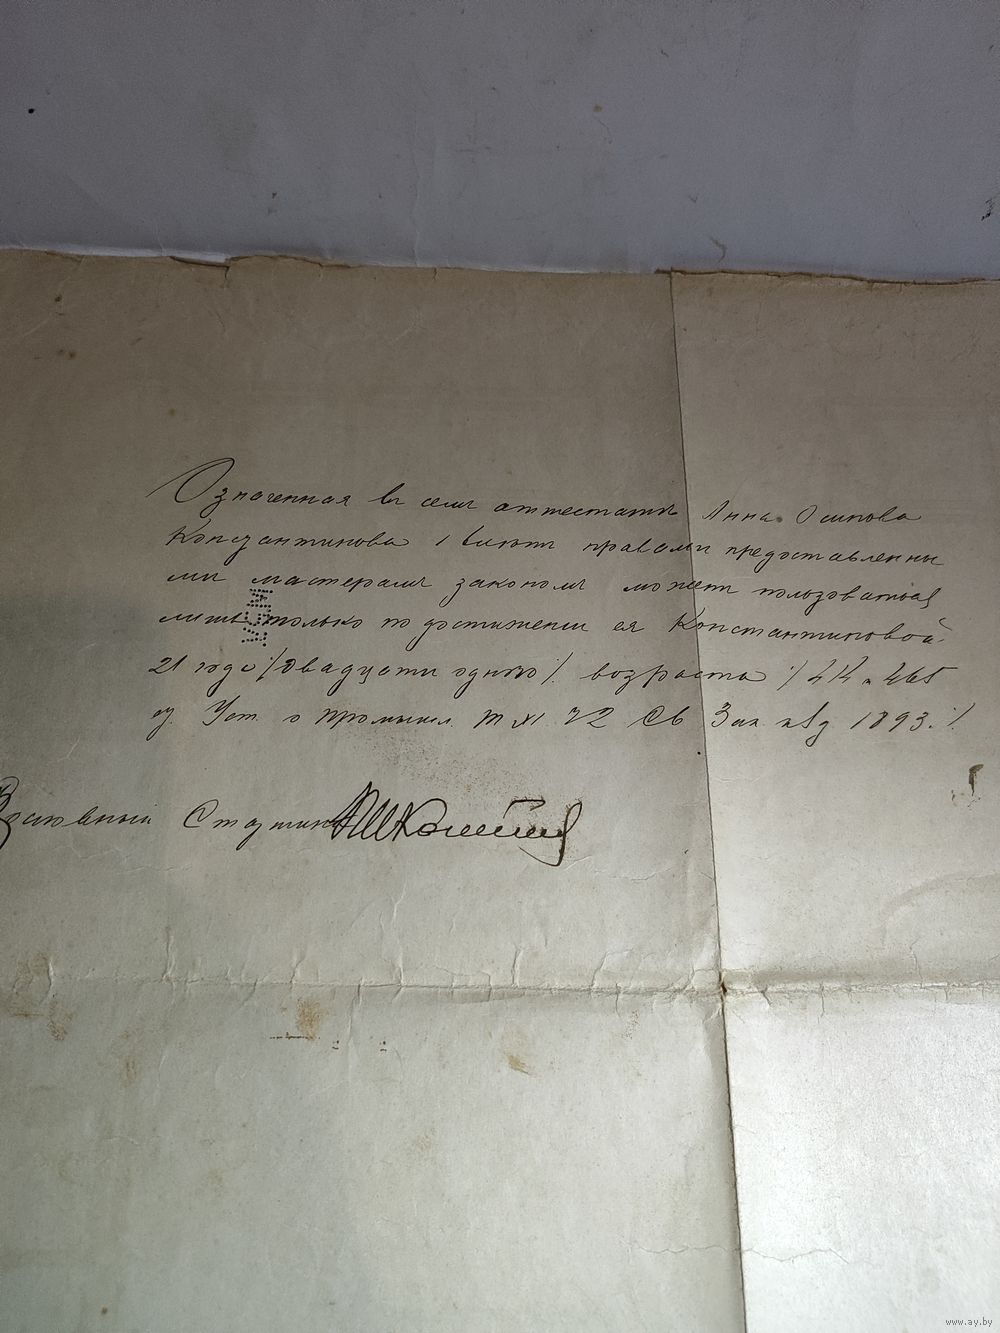 Означенная въ семъ аттестатѣ Анна Осипова
Константинова правами предоставленны
ми мастерамъ закономъ можетъ пользоваться
лишь только по достиженіи ея Константиновой
21 года /двадцати одного/ возраста
Уст. о промышл. 1893
Ремесленный Старшина
www.ay.by